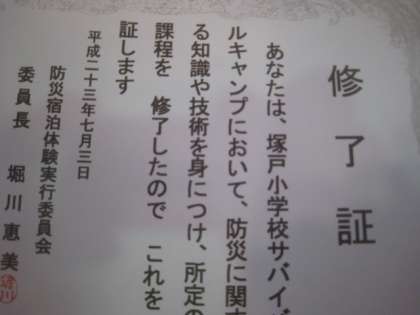 修了証
あなたは、塚戸小学校サバイバ
ルキャンプにおいて、防災に関す
る知識や技術を身につけ、所定の
課程を 修了したので これを
証します
平成二十三年七月三日
防災宿泊体験実行委員会
委員長 堀川恵美